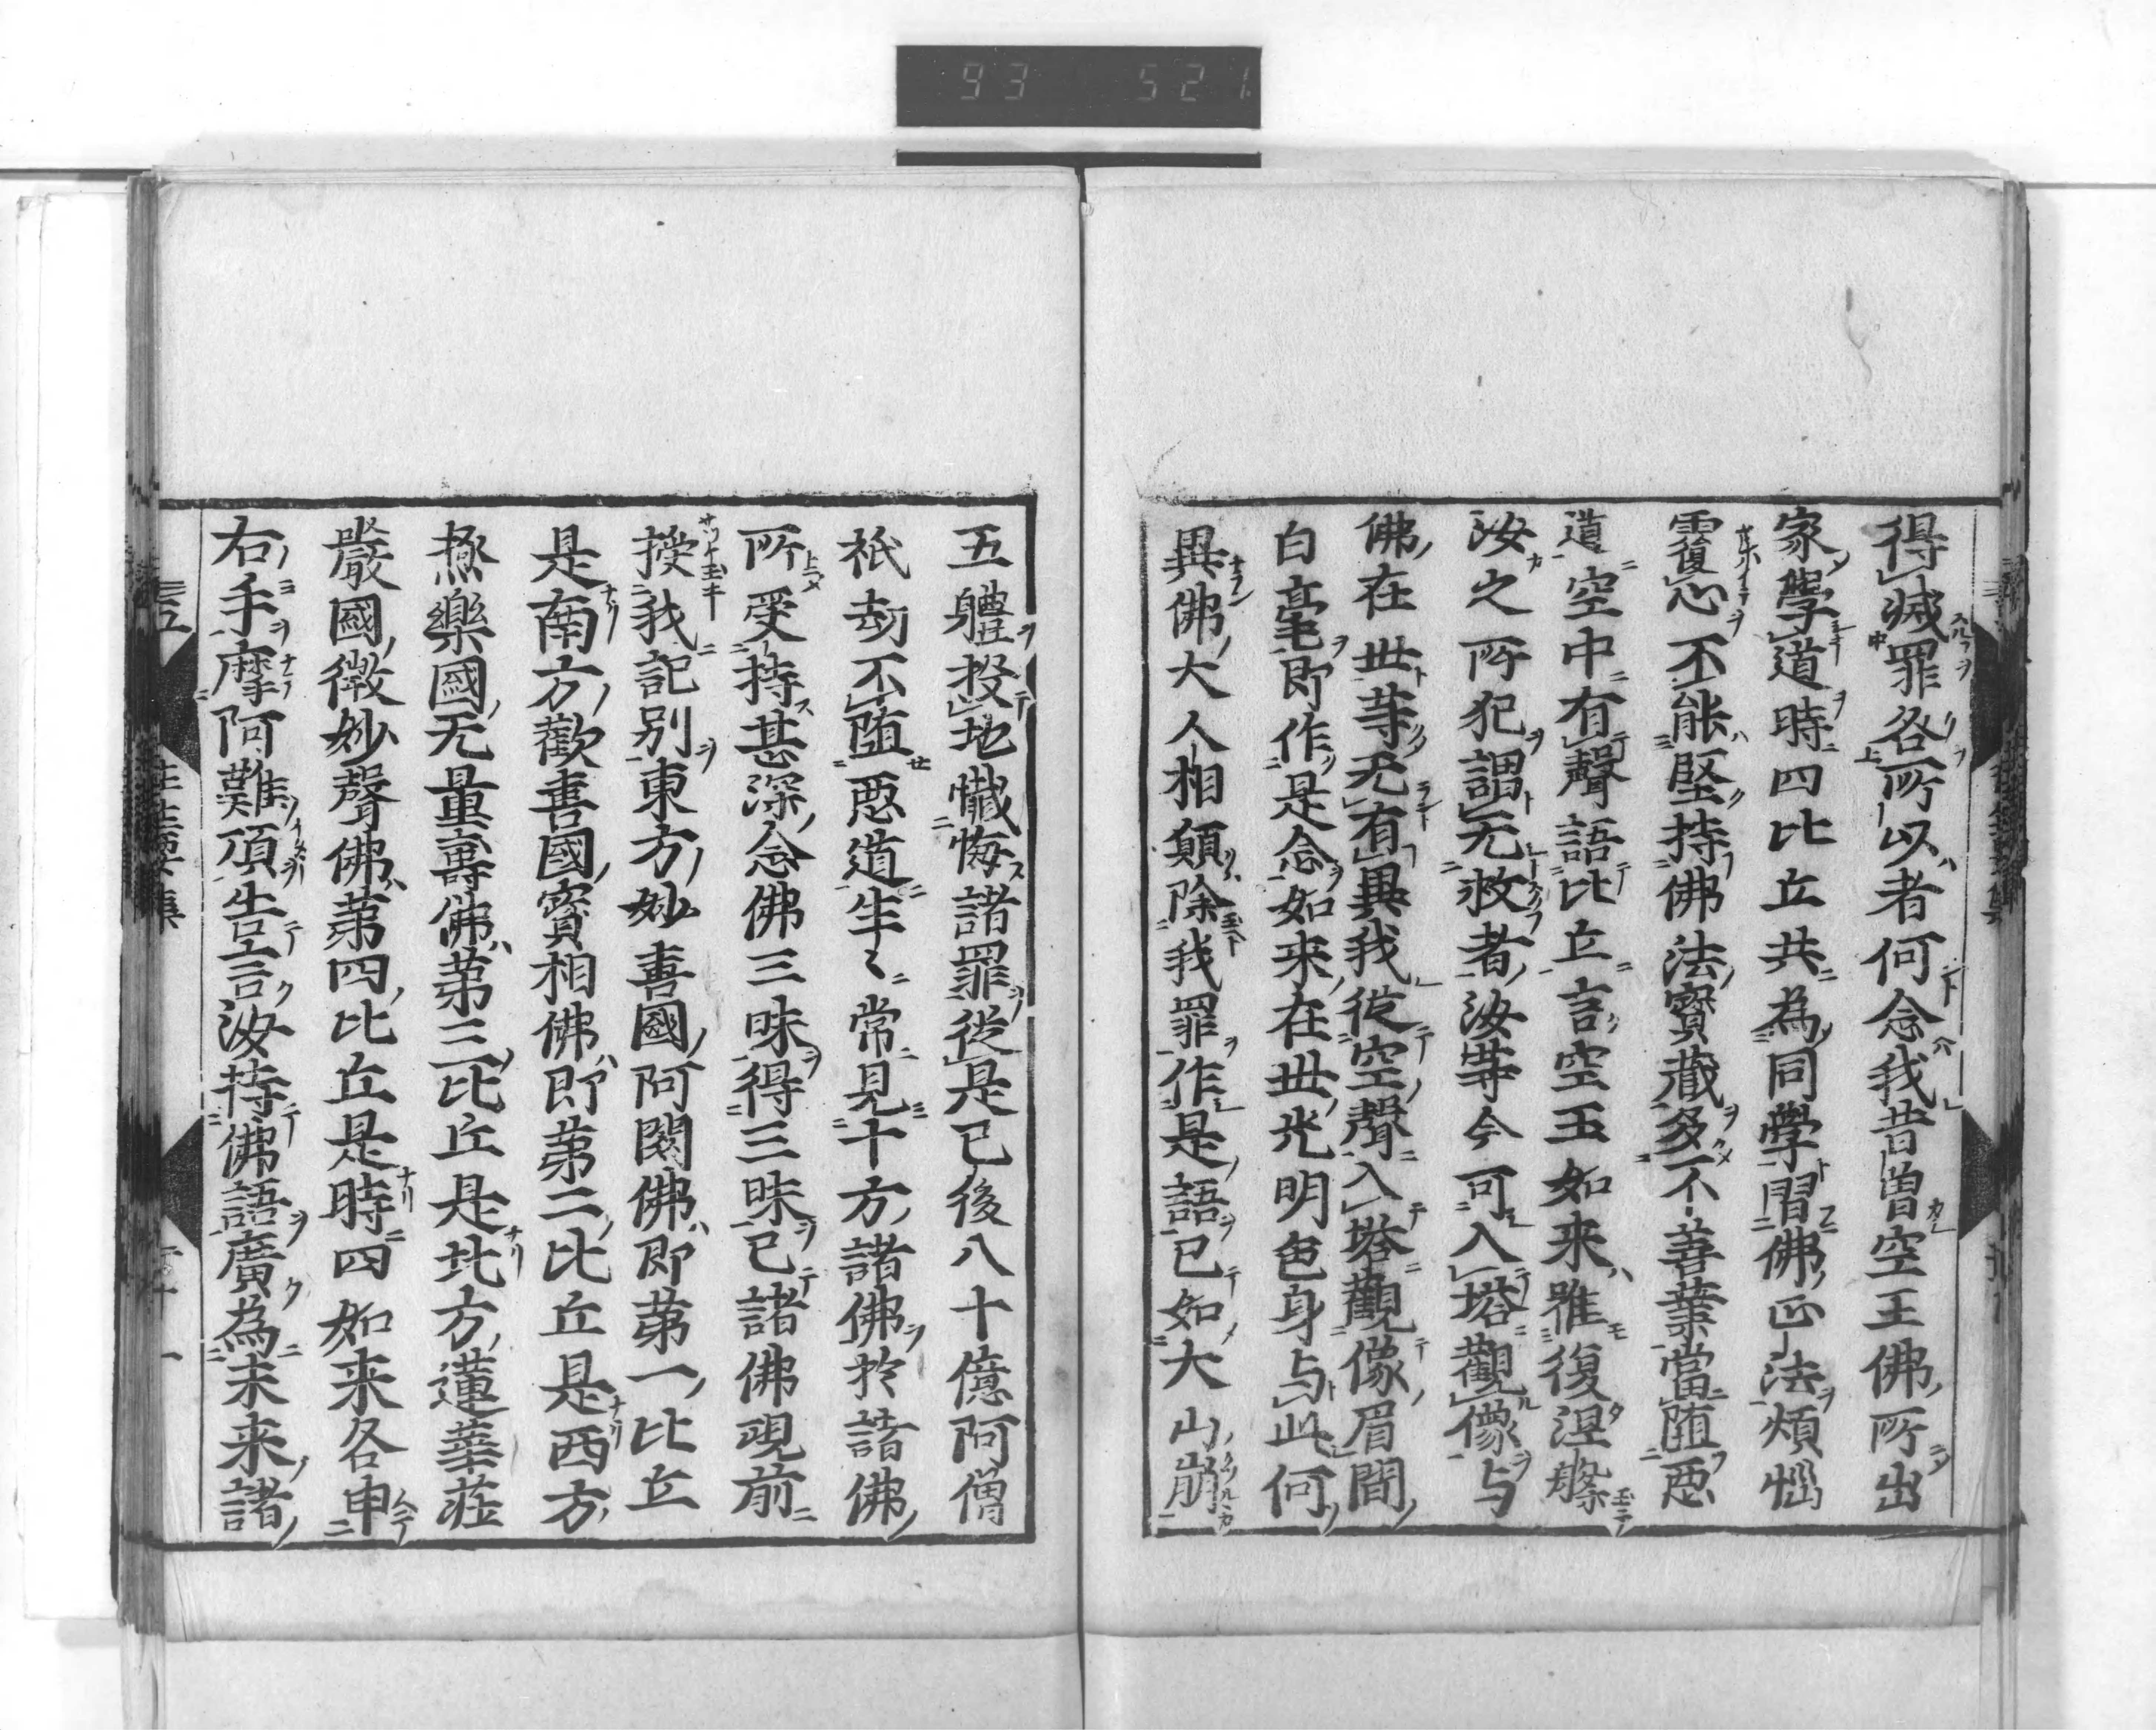 93 521
得滅罪各所以者何念我昔曽空王佛所出
家學道時四比丘共為同學習佛正法煩悩
覆心不能堅持佛法寳蔵多不善業當堕悪
道空中有聲語比丘言空王如来雖復涅槃
汝之所犯謂无救者汝等今可入塔觀像与
佛在世等无有異我従空聲入塔觀像眉間
白毫即作是念如来在世光明色身与此何
異佛大人相願除我罪作是語已如大山崩
五軆投地懺悔諸罪従是已後八十億阿僧
祇劫不堕悪道生〻常見十方諸佛於諸佛
所受持甚深念佛三昧得三昧已諸佛現前
授我記別東方妙喜國阿閦佛即第一比丘
是南方歡喜國寳相佛即第二比丘是西方
極樂國无量壽佛第三比丘是北方蓮華荘
嚴國微妙聲佛第四比丘是時四如来各申
右手摩阿難頂告言汝持佛語廣為未来諸